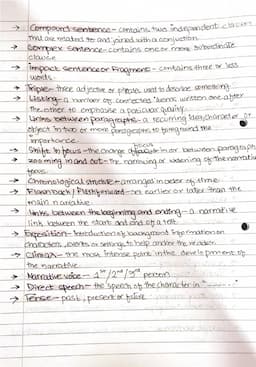 → Compound sentence - contains two independent clauses
that are related to and joined with a conjunction.
→ Complex sentence - contains one or more subordinate
clause
→ Impact sentence or Fragment - contains three or less
words
→ Triple - three adjective or phrases used to describe something
→ Listing - a number of connected items written one after
the other to emphasise a particular quality.
→ Links between paragraphs - a recurring idea, character or
object in two or more paragraphs to foreground the
importance.
→ Shift in focus - the change of focus in or between paragraphs
→ Zooming in and out - the narrowing or widening of the narrative
focus.
→ Chronological structure - arranged in order of time.
→ Flashback / Flashforward - an earlier or later than the
main narrative
→ Links between the beginning and ending - a narrative
link between the start and end of a text
→ Exposition - Introduction of background information on
characters, events or settings to help anchor the reader.
→ Climax - the most intense point in the development of
the narrative
→ Narrative voice - 1st / 2nd / 3rd person
→ Direct speech - the speech of the character in "......."
→ Tense - past, present or future